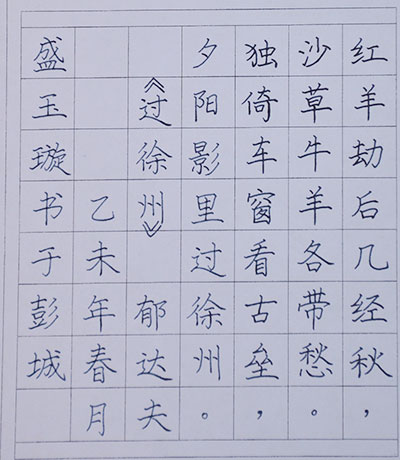 红羊劫后几经秋，
沙草牛羊各带愁。
独倚车窗看古垒，
夕阳影里过徐州。
《过徐州》郁达夫
乙未年春月
盛玉璇书于彭城